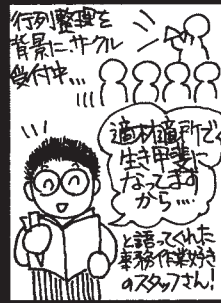 行列整理を
背景に、サークル
受付中…
適材適所で
生き甲斐に
なってます
から…
と語ってくれた
事務作業好き
のスタッフさん!